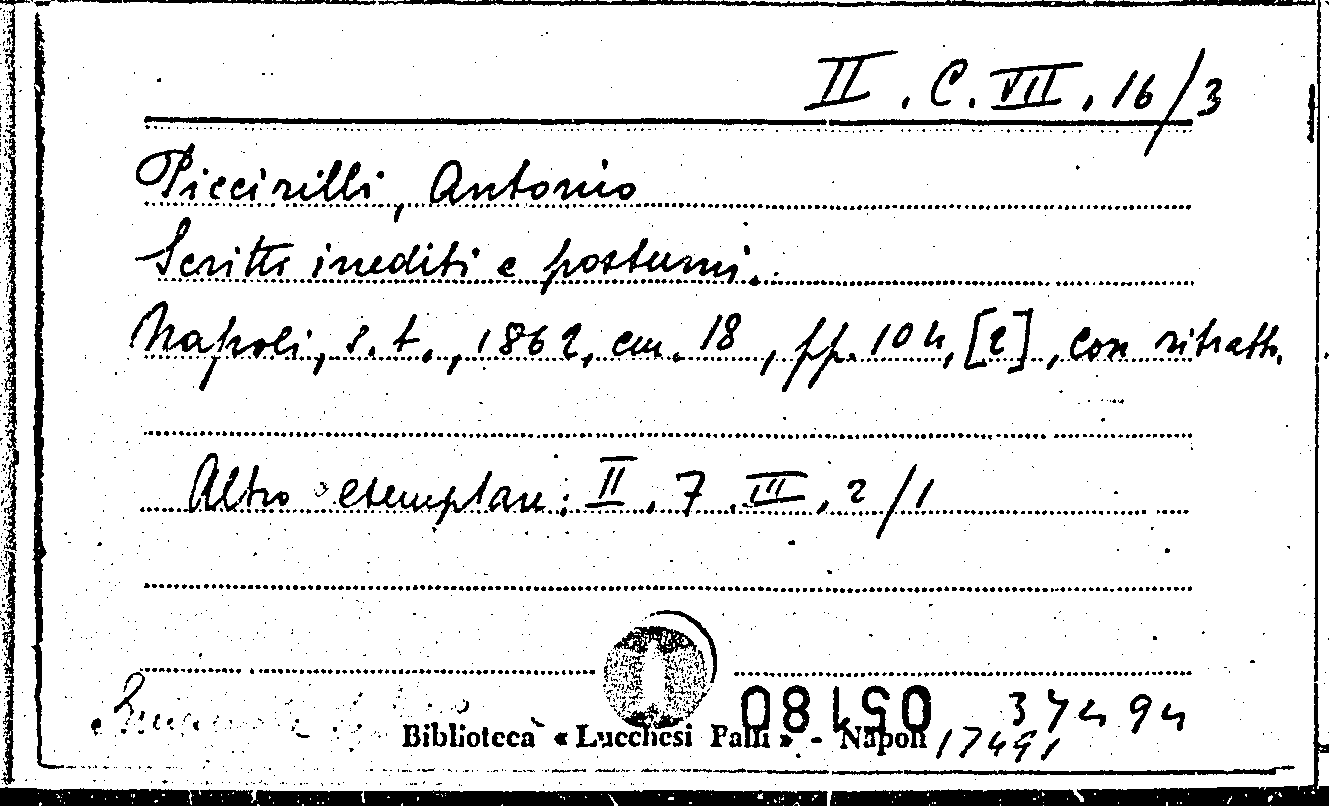 II. C. VII. 16/3
Piccirilli, Antonio
Scritti inediti e postumi.
Napoli, s. t., 1862, cm. 18, pp. 104, [2], con ritratto.
Altro esemplare: II. 7. III. 2/1
05180
37494
Biblioteca « Lucchesi Palli » - Napoli
17491